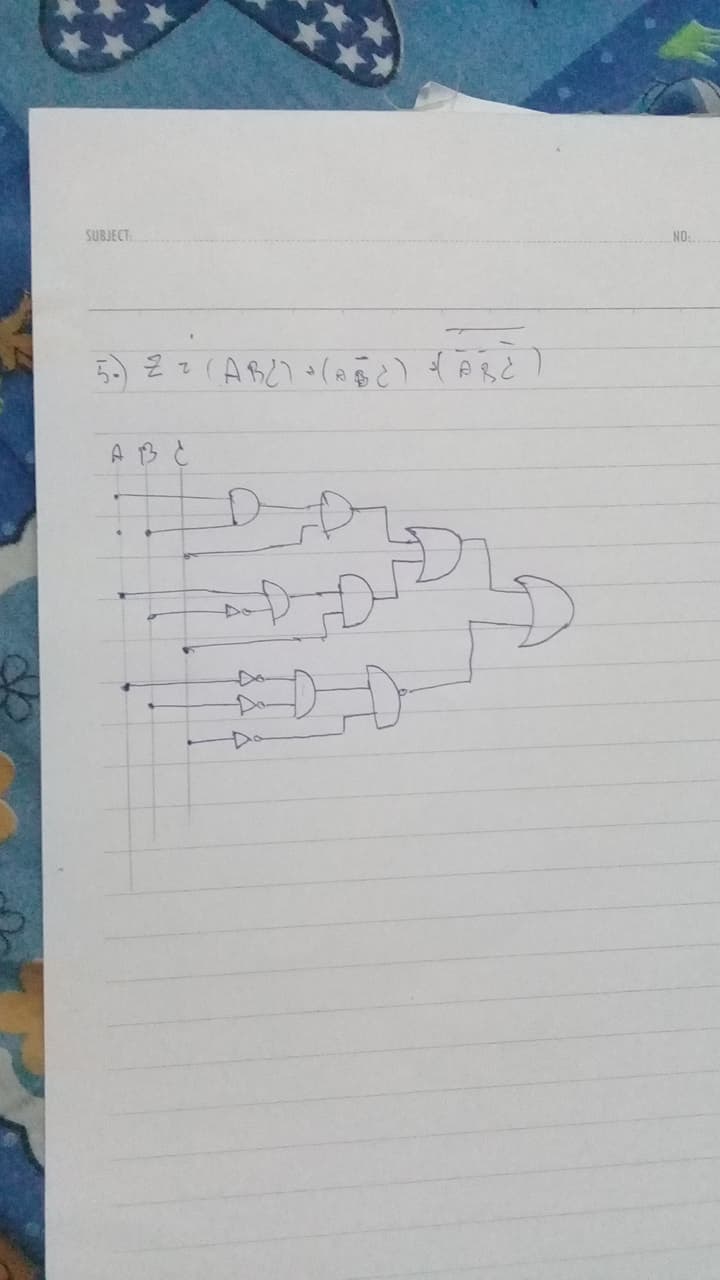 SUBJECT:
NO:
5.) Z = (ABC) + (AB̅C) + (A̅B̅C̅)̅
A B C